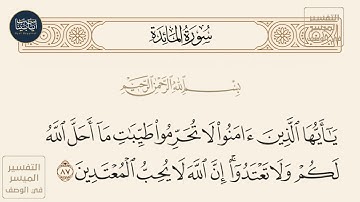 سُورَةُ المَائِدَة
بِسْمِ اللَّهِ الرَّحْمَٰنِ الرَّحِيمِ
يَٰٓأَيُّهَا ٱلَّذِينَ ءَامَنُوا۟ لَا تُحَرِّمُوا۟ طَيِّبَٰتِ مَآ أَحَلَّ ٱللَّهُ
لَكُمْ وَلَا تَعْتَدُوٓا۟ ۚ إِنَّ ٱللَّهَ لَا يُحِبُّ ٱلْمُعْتَدِينَ ٨٧
التفسير
الميسر
في الوصف